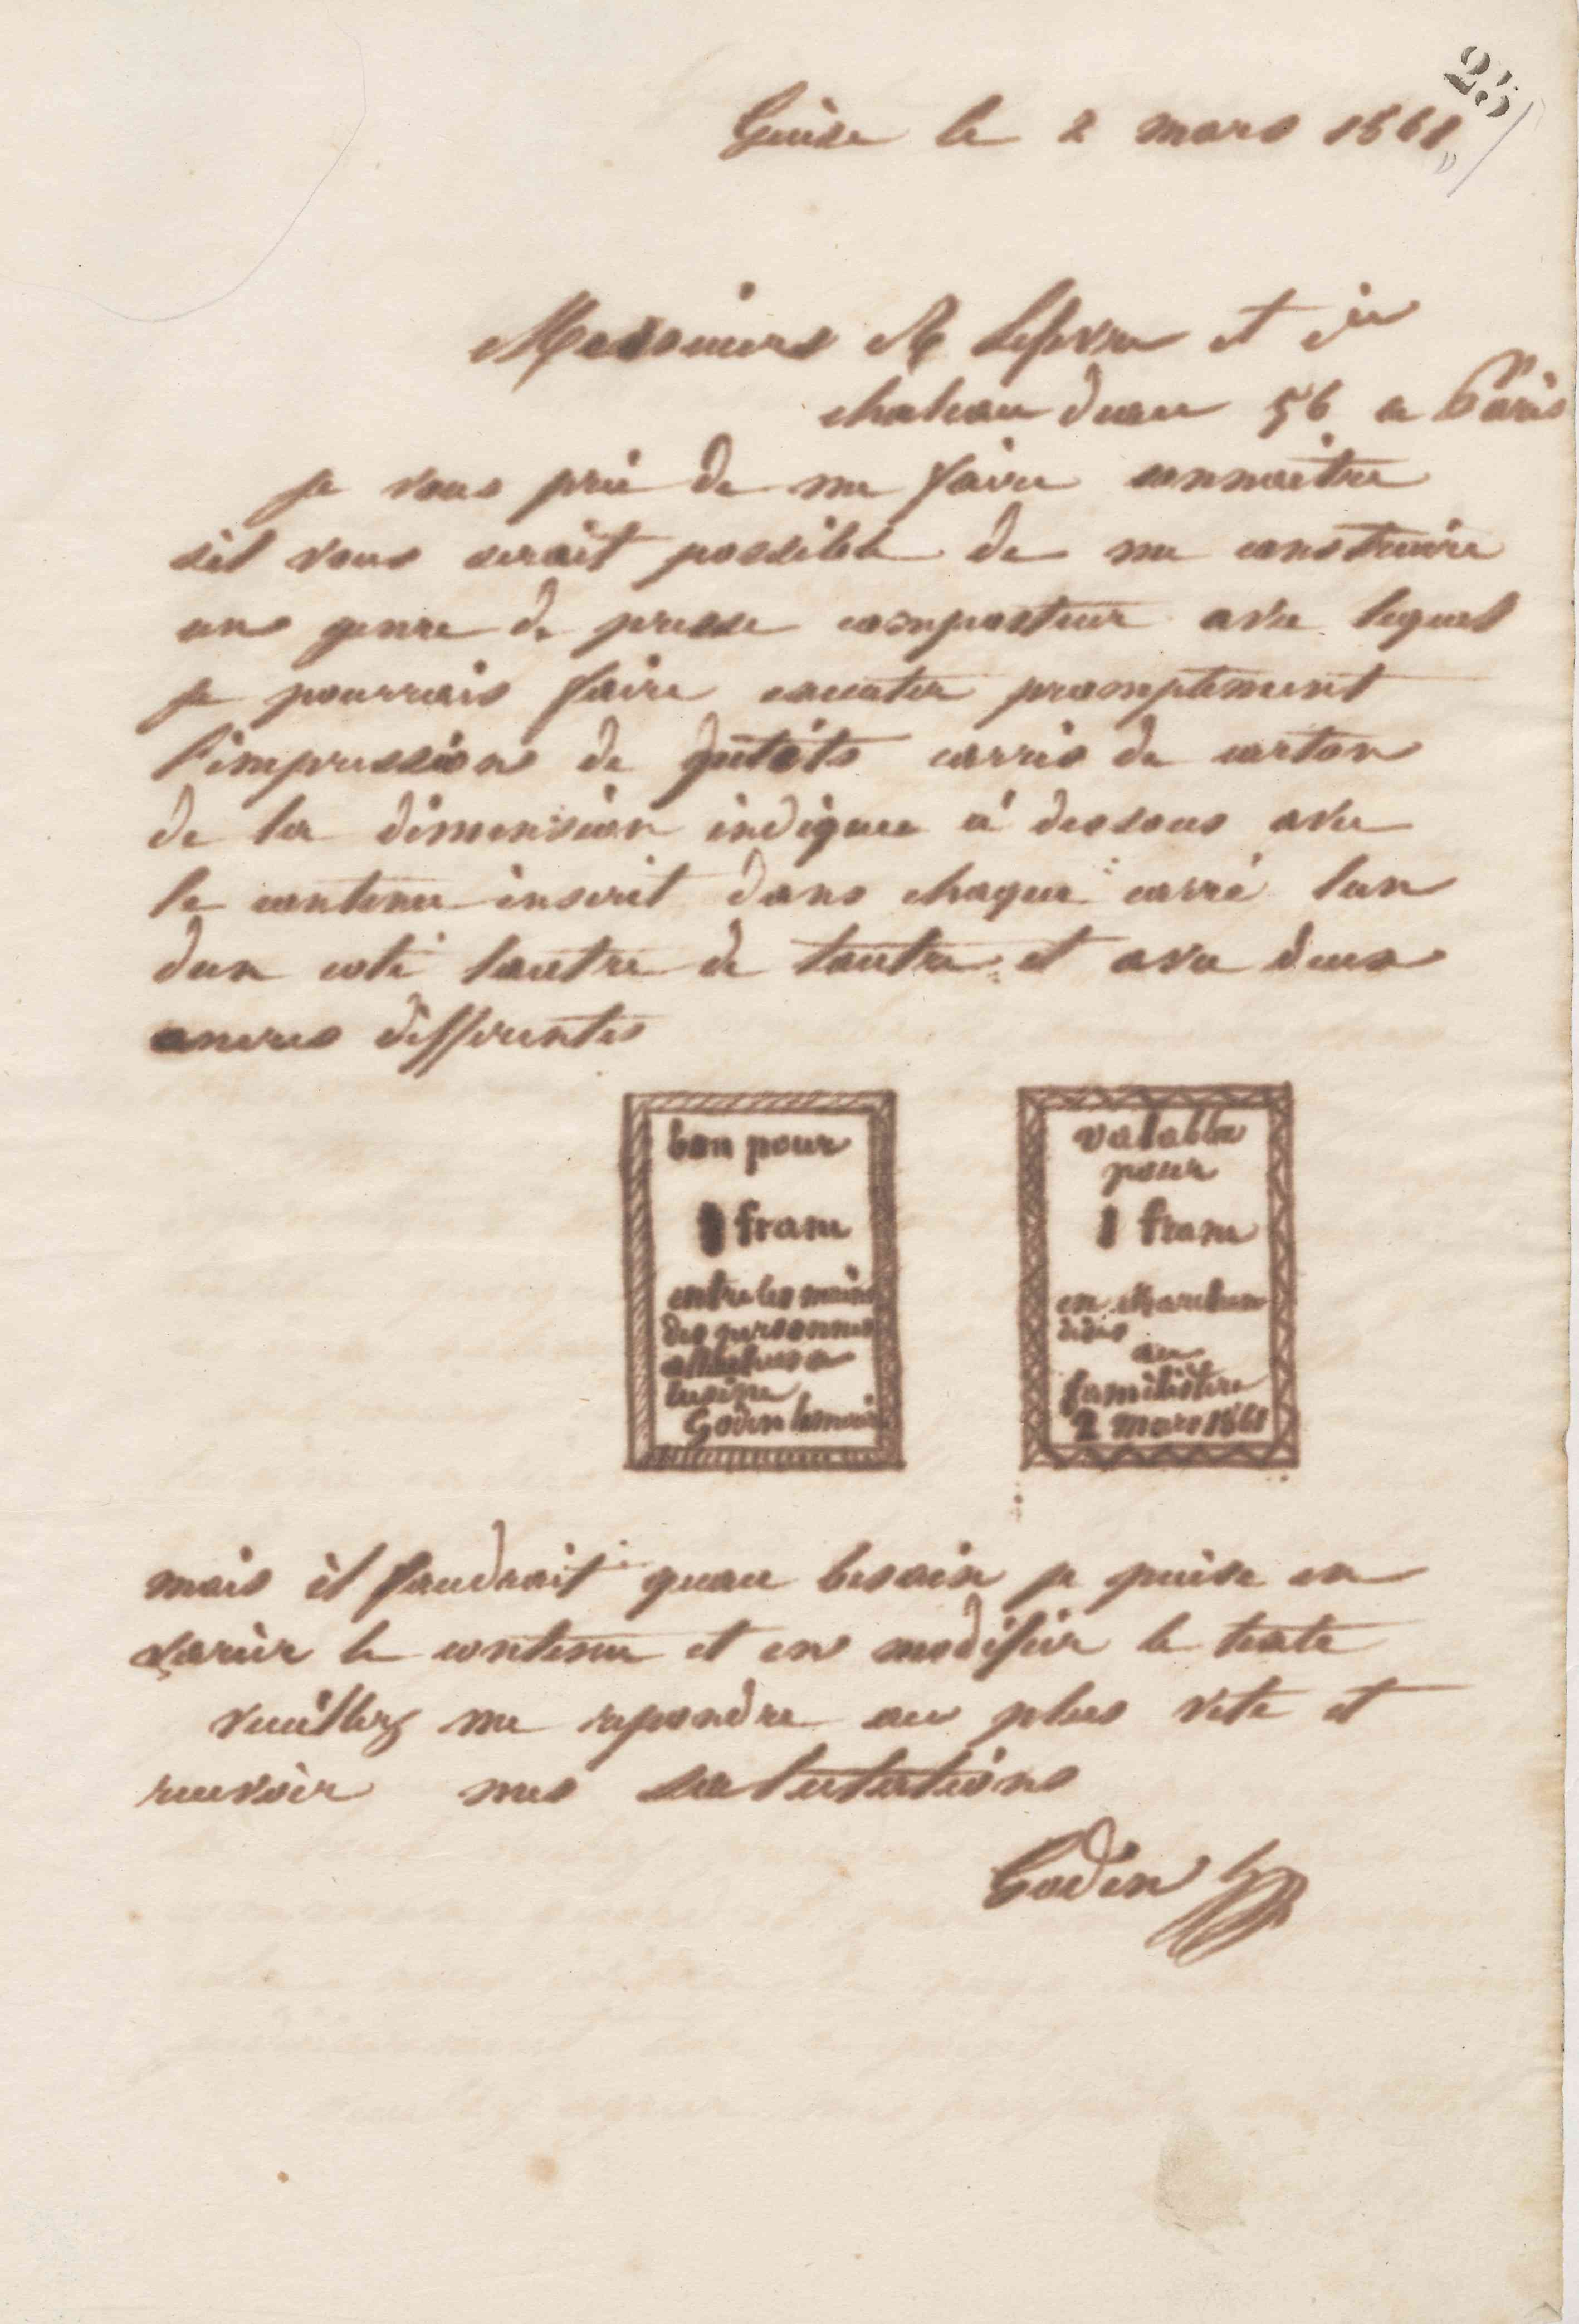 25
Guise le 2 mars 1861
Messieurs Lefevre et cie
chateau deau 56 a Paris
je vous prie de me faire connaitre
sil vous serait possible de me construire
un genre de presse composteur avec lequel
je pourrais faire executer promptement
l'impression de petits carrés de carton
de la dimension indiquee ci dessous avec
le contenu inscrit dans chaque carré lun
dun coté lautre de lautre et avec deux
encres differentes
bon pour
1 franc
entre les mains
des personnes
attachees a
lusine
Godin Lemaire
valable
pour
1 franc
en marchan
dises
au
familistere
2 mars 1861
mais il faudrait quau besoin je puise en
varier le contenu et en modifier le texte
veuillez me repondre au plus vite et
recevoir mes salutations
Godin